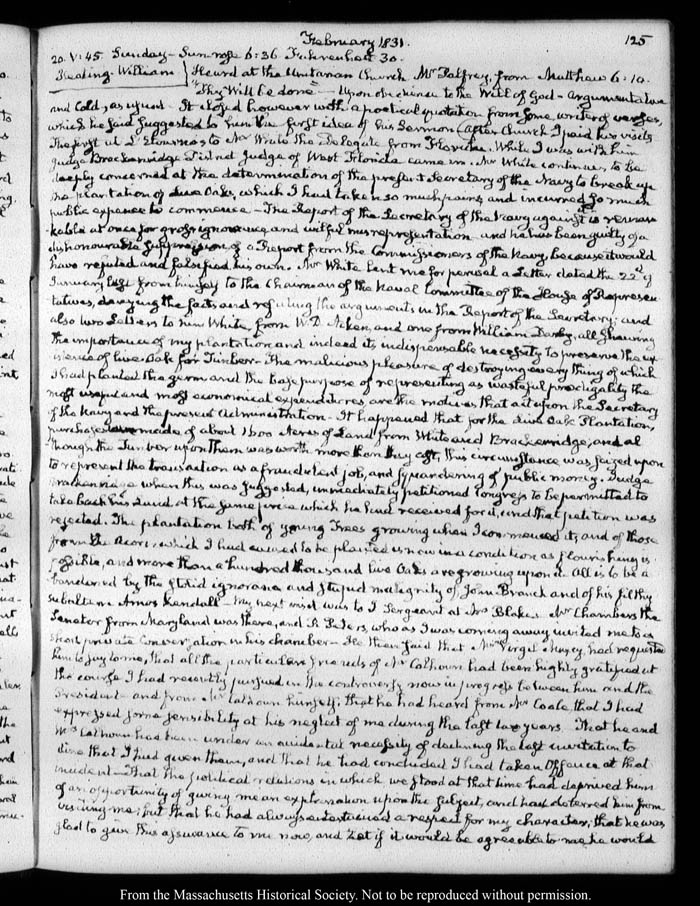 February 1831.
125
20. V:45. Sunday. Sun rose 6:36 Fahrenheit 30.
Keating. William } Heard at the Unitarian Church Mr Palfrey, from Matthew 6:10.
"Thy Will be done" — Upon obedience to the Will of God — argumentative
and Cold, as usual. It closed however with a poetical quotation from some writer of verses,
which he said suggested to him the first idea of his Sermon. After Church I paid two visits
The first at to Mr White the Delegate from Florida. While I was with him
Judge Brackenridge District Judge of West Florida came in. Mr White continues to be
deeply concerned at the determination of the present Secretary of the Navy to break up
the plantation of Live Oaks, which I had taken so much pains, and incurred so much
public expence to commence — The Report of the Secretary of the Navy against it is remar-
kable at once for gross ignorance and wilful misrepresentation and he has been guilty of a
dishonourable suppression of a Report from the Commissioners of the Navy, because it would
have refuted and falsified his own. Mr White lent me for perusal a Letter dated the 22d of
January last from himself to the Chairman of the Naval Committee of the House of Represen-
tatives, denying the facts and refuting the arguments in the Report of the Secretary; and
also two Letters to him White, from W. D. and one from William Darby, all shewing
the importance of my plantation and indeed its indispensable necessity to preserve the ex-
istence of live Oak for Timber. The malicious pleasure of destroying every thing of which
I had planted the germ and the base purpose of representing as wasteful prodigality the
most useful and most economical expenditures are the motives that act upon the Secretary
of the Navy and the present Administration — It happened that for the Live Oak Plantation,
purchases were made of about 1500 Acres of Land from White and Brackenridge, and al
though the Timber upon them was worth more than they cost, this circumstance was seized upon
to represent the transaction as a fraudulent job, and squandering of public money. Judge
Brackenridge when this was suggested, immediately petitioned Congress to be permitted to
take back his Land at the same price which he had received for it, and that petition was
rejected. The plantation both of young Trees growing when I commenced it, and of those
from the Acorn, which I had caused to be planted is now in a condition as flourishing as
possible, and more than a hundred thousand live Oaks are growing upon it. All is to be a-
bandoned by the stolid ignorance and stupid malignity of John Branch and of his filthy
subaltern Amos Kendall — My next visit was to J. Sergeant at Mrs Blake's. Mr Chambers the
Senator from Maryland was there, and R. Peters, who as I was coming away invited me to a
short private conversation in his chamber — He then said that Mr Virgil Maxcy, had requested
him to say to me, that all the particular friends of Mr Calhoun had been highly gratified at
the course I had recently pursued in the controversy now in progress between him and the
President — and from Mr Calhoun himself; that he had heard from Mr Coale, that I had
expressed some sensibility at his neglect of me during the last two years. That he and
Mrs Calhoun had been under an accidental necessity of declining the last invitation to
dine that I had given them, and that he had concluded I had taken Offence at that
incident — That the political relations in which we stood at that time had deprived him
of an opportunity of giving me an explanation upon the subject, and had deterred him from
visiting me; but that he had always entertained a respect for my character; that he was
glad to give this assurance to me now, and that if it would be agreeable to me he would
From the Massachusetts Historical Society. Not to be reproduced without permission.